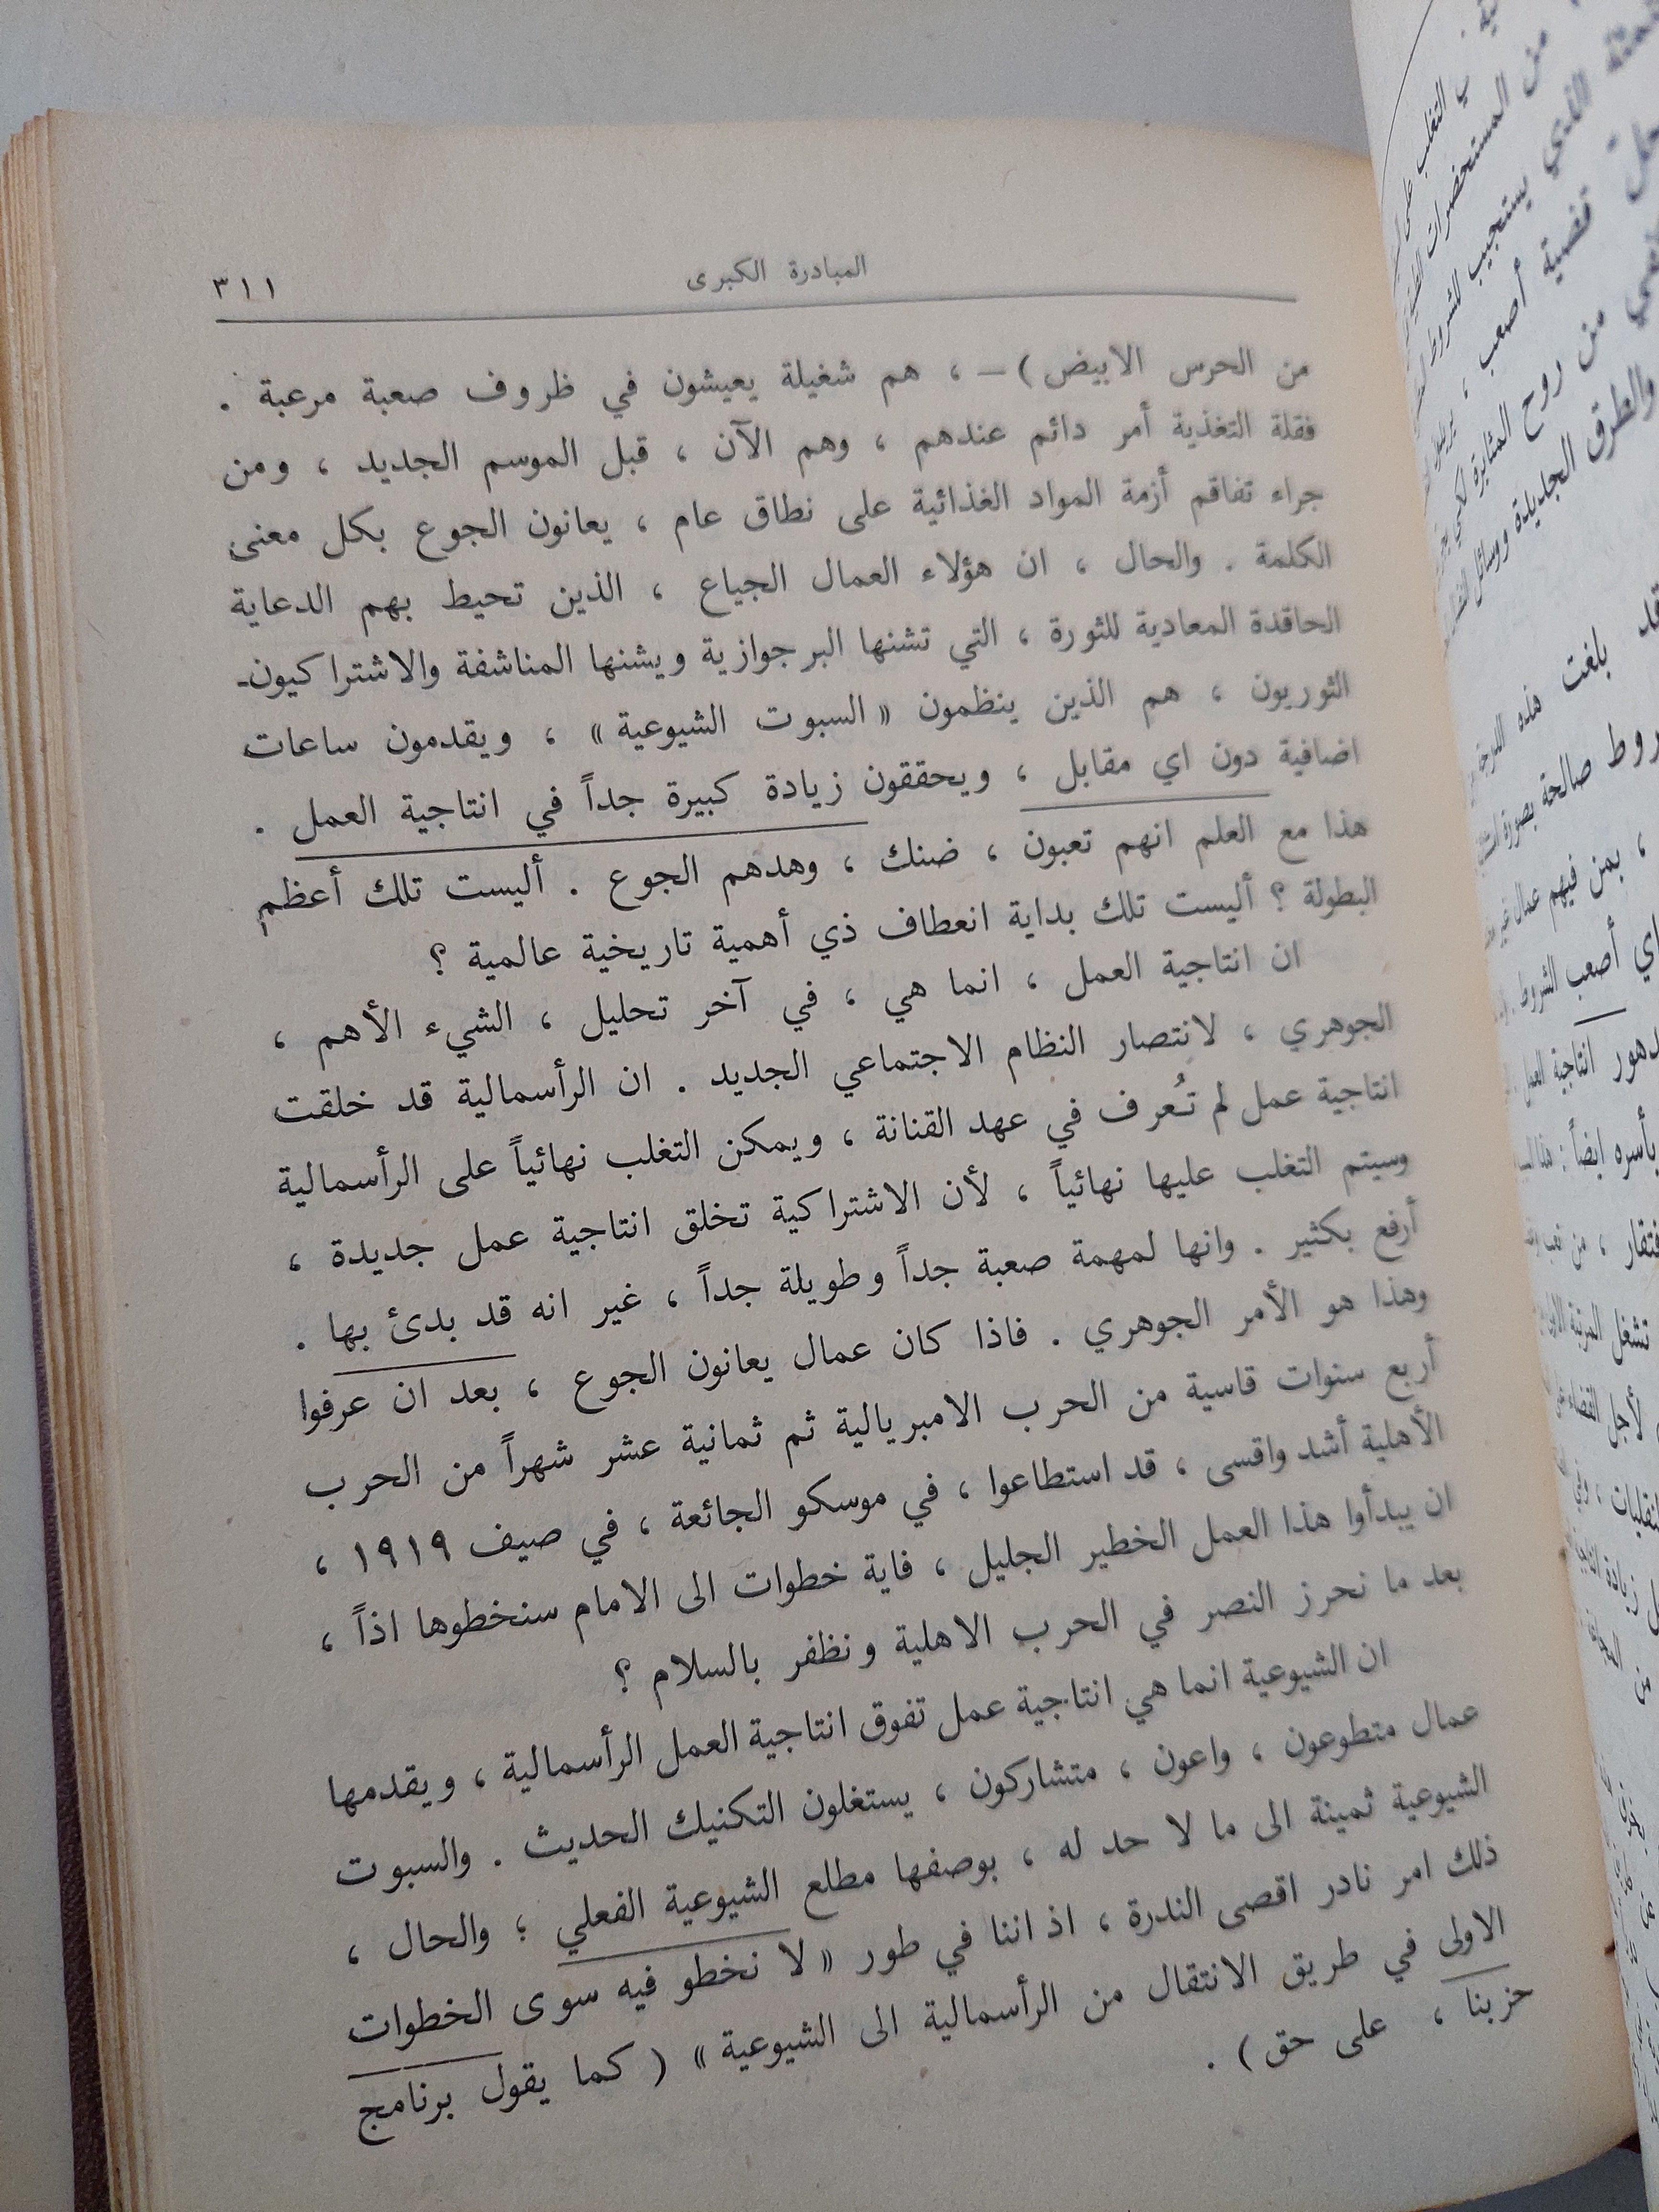 المبادرة الكبرى ٣١١
من الحرس الابيض ) – ، هم شغيلة يعيشون في ظروف صعبة مرعبة .
فقلة التغذية أمر دائم عندهم ، وهم الآن ، قبل الموسم الجديد ، ومن
جراء تفاقم أزمة المواد الغذائية على نطاق عام ، يعانون الجوع بكل معنى
الكلمة . والحال ، ان هؤلاء العمال الجياع ، الذين تحيط بهم الدعاية
الحاقدة المعادية للثورة ، التي تشنها البرجوازية ويشنها المناشفة والاشتراكيون-
الثوريون ، هم الذين ينظمون « السبوت الشيوعية » ، ويقدمون ساعات
اضافية دون اي مقابل ، ويحققون زيادة كبيرة جداً في انتاجية العمل .
هذا مع العلم انهم تعبون ، ضنك ، وهدهم الجوع . أليست تلك أعظم
البطولة ؟ أليست تلك بداية انعطاف ذي أهمية تاريخية عالمية ؟
ان انتاجية العمل ، انما هي ، في آخر تحليل ، الشيء الأهم ،
الجوهري ، لانتصار النظام الاجتماعي الجديد . ان الرأسمالية قد خلقت
انتاجية عمل لم تُعرف في عهد القنانة ، ويمكن التغلب نهائياً على الرأسمالية
وسيتم التغلب عليها نهائياً ، لأن الاشتراكية تخلق انتاجية عمل جديدة ،
أرفع بكثير . وانها لمهمة صعبة جداً وطويلة جداً ، غير انه قد بدئ بها .
وهذا هو الأمر الجوهري . فاذا كان عمال يعانون الجوع ، بعد ان عرفوا
أربع سنوات قاسية من الحرب الامبريالية ثم ثمانية عشر شهراً من الحرب
الأهلية أشد واقسى ، قد استطاعوا ، في موسكو الجائعة ، في صيف ١٩١٩ ،
ان يبدأوا هذا العمل الخطير الجليل ، فاية خطوات الى الامام سنخطوها اذاً ،
بعد ما نحرز النصر في الحرب الاهلية ونظفر بالسلام ؟
ان الشيوعية انما هي انتاجية عمل تفوق انتاجية العمل الرأسمالية ، ويقدمها
عمال متطوعون ، واعون ، متشاركون ، يستغلون التكنيك الحديث . والسبوت
الشيوعية ثمينة الى ما لا حد له ، بوصفها مطلع الشيوعية الفعلي ؛ والحال ،
ذلك امر نادر اقصى الندرة ، اذ اننا في طور « لا نخطو فيه سوى الخطوات
الاولى في طريق الانتقال من الرأسمالية الى الشيوعية » ( كما يقول برنامج
حزبنا ، على حق ) .
من المستحضرات
الذي يستجيب للشروط
قضية أصعب ،
من روح المثابرة لكي
والطرق الجديدة ووسائل
بلغت هذه
صالحة بصورة
، بمن فيهم عمال غير
أصعب الشروط
انتاجية العمل
بأسره ايضاً : هذا
تشغل المرتبة
لأجل القضاء على
زيادة